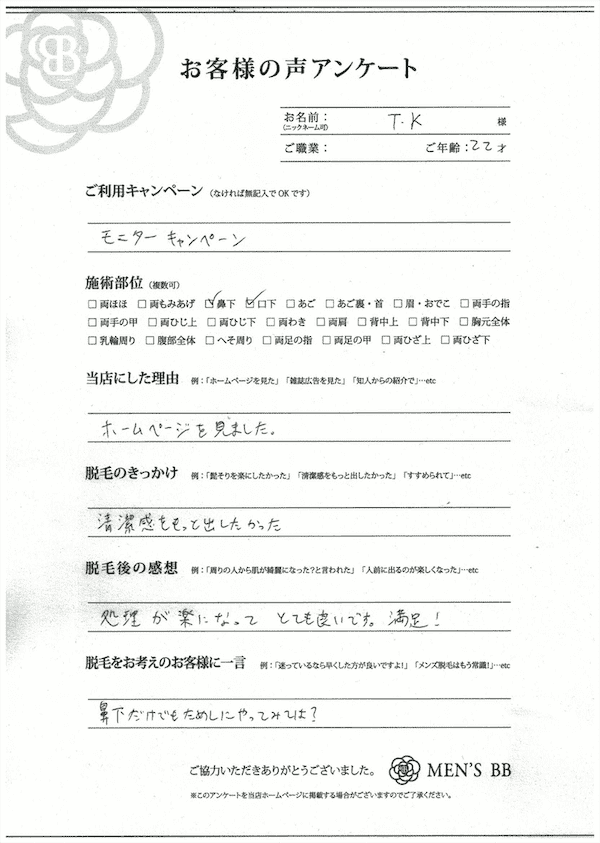 BB
お客様の声アンケート
お名前: T.K 様
(ニックネーム可)
ご職業: ご年齢:22才
ご利用キャンペーン (なければ無記入でOKです)
モニターキャンペーン
施術部位 (複数可)
□両ほほ □両もみあげ ☑鼻下 ☑口下 □あご □あご裏・首 □眉・おでこ □両手の指
□両手の甲 □両ひじ上 □両ひじ下 □両わき □両肩 □背中上 □背中下 □胸元全体
□乳輪周り □腹部全体 □へそ周り □両足の指 □両足の甲 □両ひざ上 □両ひざ下
当店にした理由 例:「ホームページを見た」「雑誌広告を見た」「知人からの紹介で」…etc
ホームページを見ました。
脱毛のきっかけ 例:「髭そりを楽にしたかった」「清潔感をもっと出したかった」「すすめられて」…etc
清潔感をもっと出したかった
脱毛後の感想 例:「周りの人から肌が綺麗になった?と言われた」「人前に出るのが楽しくなった」…etc
処理が楽になって とても良いです。満足!
脱毛をお考えのお客様に一言 例:「迷っているなら早くした方が良いですよ!」「メンズ脱毛はもう常識!」…etc
鼻下だけでもためしにやってみては?
ご協力いただきありがとうございました。 MEN'S BB
※このアンケートを当店ホームページに掲載する場合がございますのでご了承ください。